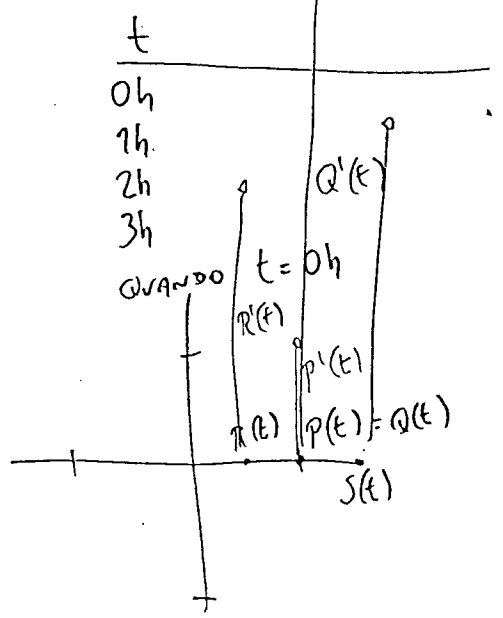 t
0h
1h
2h
3h
QUANDO t = 0h
Q'(t)
R'(t)
P'(t)
R(t) P(t) = Q(t)
S(t)